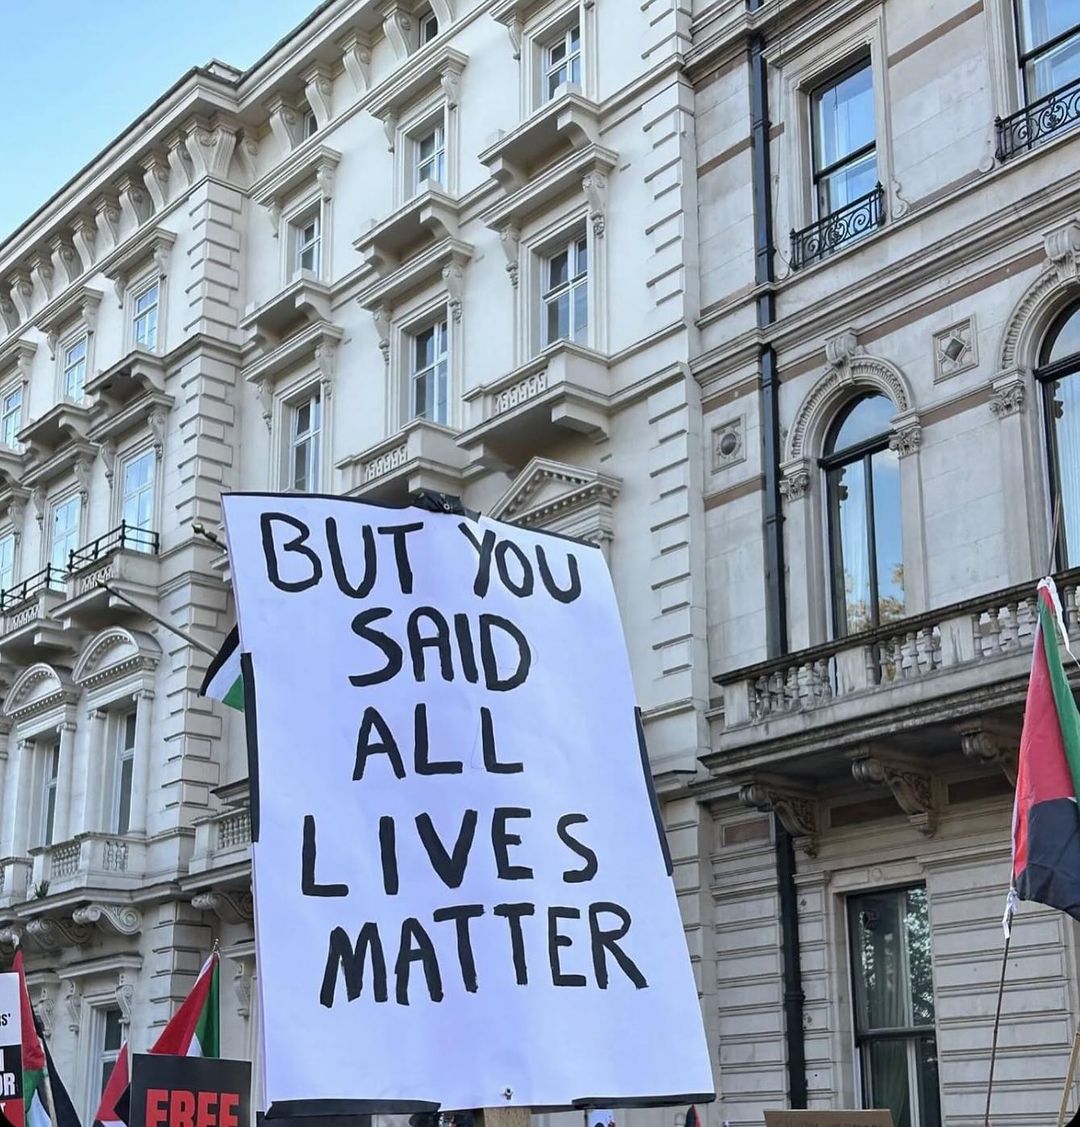 BUT YOU
SAID
ALL
LIVES
MATTER
FREE